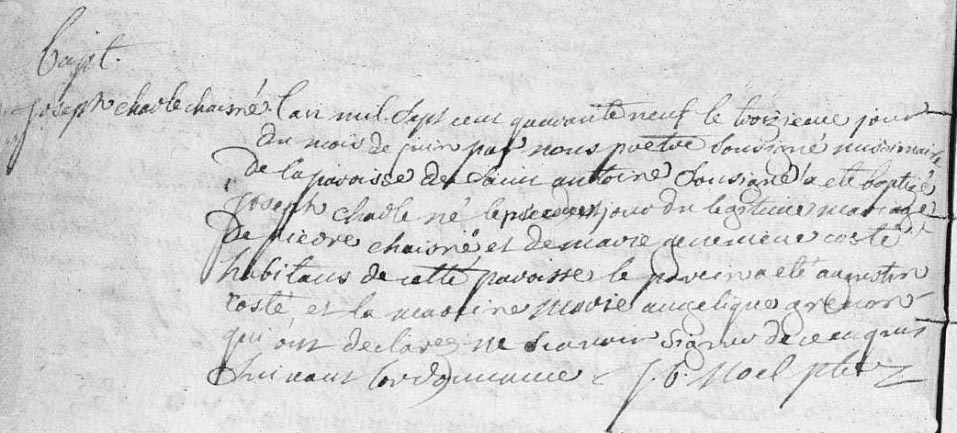 bapt.
joseph charle chaisné l'an mil sept cent quarante neuf le troisieme jour
du mois de juin par nous pretre sousigné missionaire
de la paroisse de saint antoine sousigné a eté baptisé
joseph charle né le jour du legitime mariage
de pierre chaisné et de marie genevieve costé
habitans de cette paroisse le parein a eté augustin
costé et la mareine marie angelique grenon
qui ont declarez ne scavoir signer de ce enquis
suivant l'ordonnance J. b Noel ptre